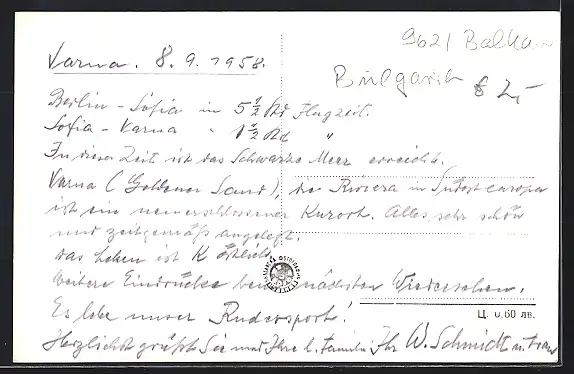 9621 Balkan
Bulgarien 8 2,-
Varna. 8.9.1958.
Berlin - Sofia in 5 1/2 Std Flugzeit.
Sofia - Varna " 1 1/2 Std "
In dieser Zeit ist das Schwarze Meer erreicht.
Varna (Goldener Sand), die Riviera in Südosteuropa
ist ein neuerschlossener Kurort. Alles sehr schön
und zeitgemäß angelegt.
Das Leben ist köstlich.
Weitere Eindrücke beim nächsten Wiedersehen.
Es lebe unser Rudersport!
Ц. 0.60 лв.
Herzlichst grüßt Sie und Ihre l. Familie Ihr W. Schmidt u. Frau